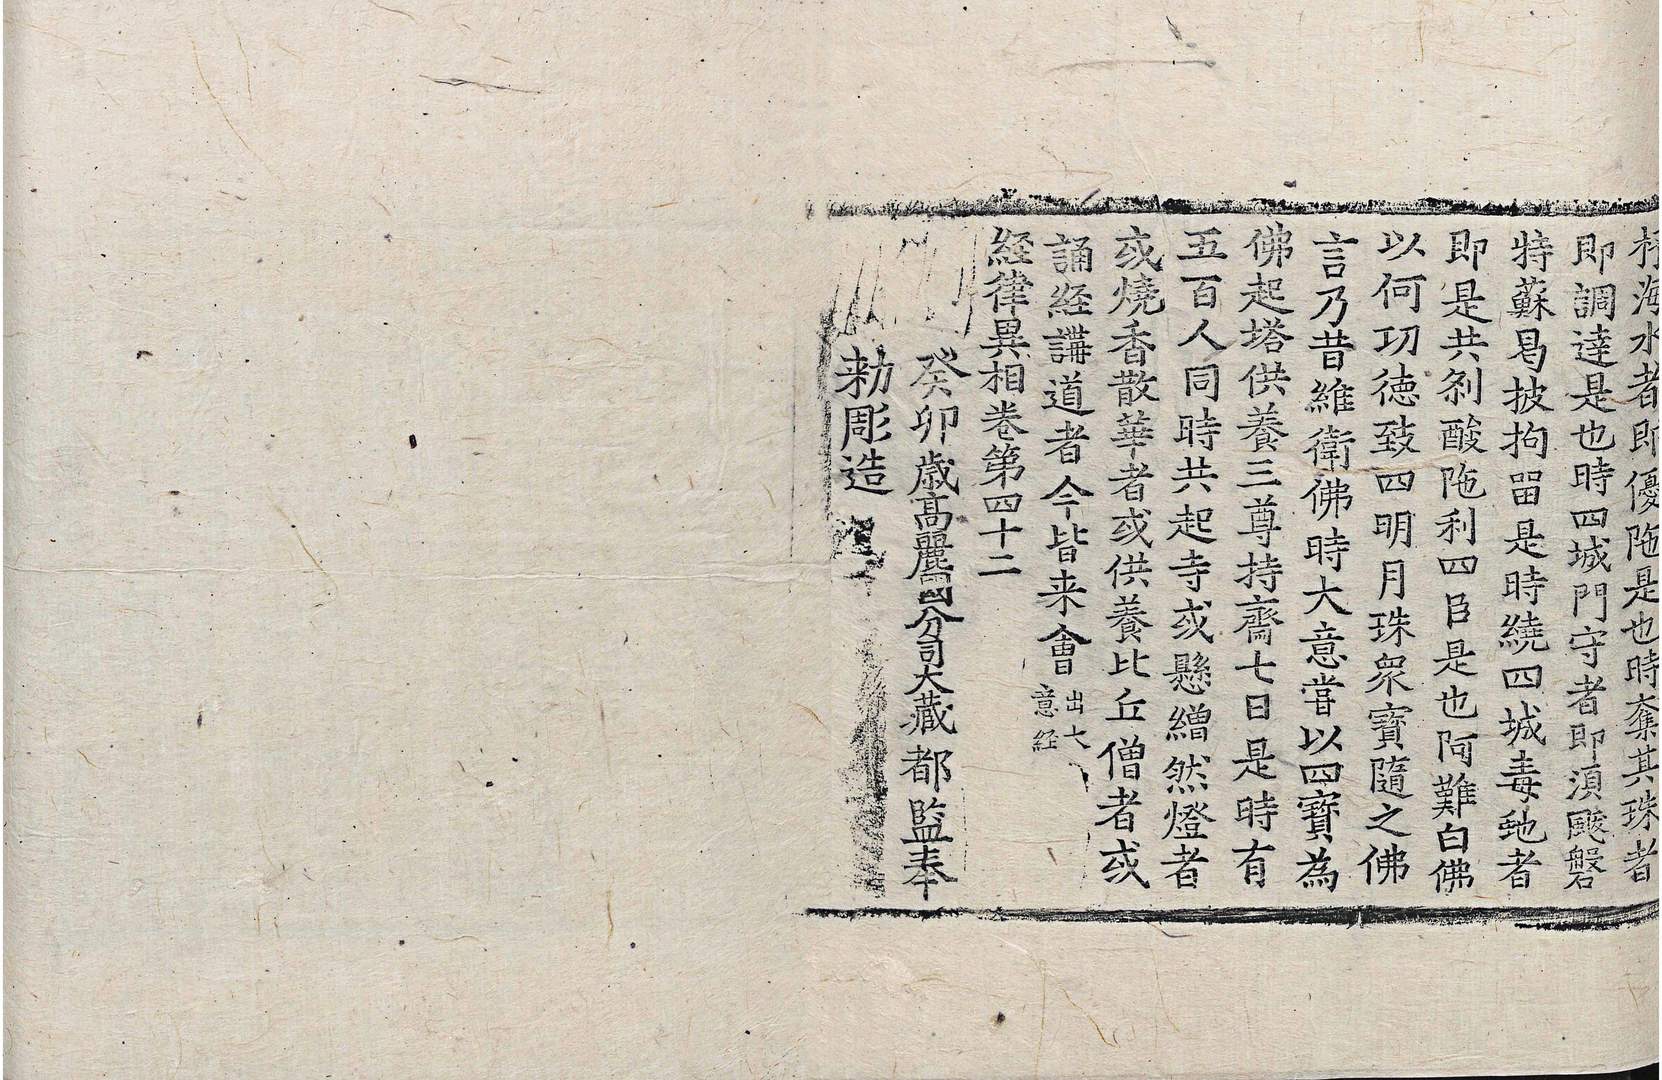 抒海水者即優陁是也時奪其珠者
即調達是也時四城門守者即湏颰磐
特蘇曷披拘留是時繞四城毒虵者
即是共剎酸陁利四臣是也阿難白佛
以何功徳致四明月珠衆寶隨之佛
言乃昔維衛佛時大意甞以四寶為
佛起塔供養三尊持齋七日是時有
五百人同時共起寺或懸繒然燈者
或燒香散華者或供養比丘僧者或
誦経講道者今皆来會出大意経
経律異相卷第四十二
癸卯歳髙麗國分司大藏都監奉
勑彫造